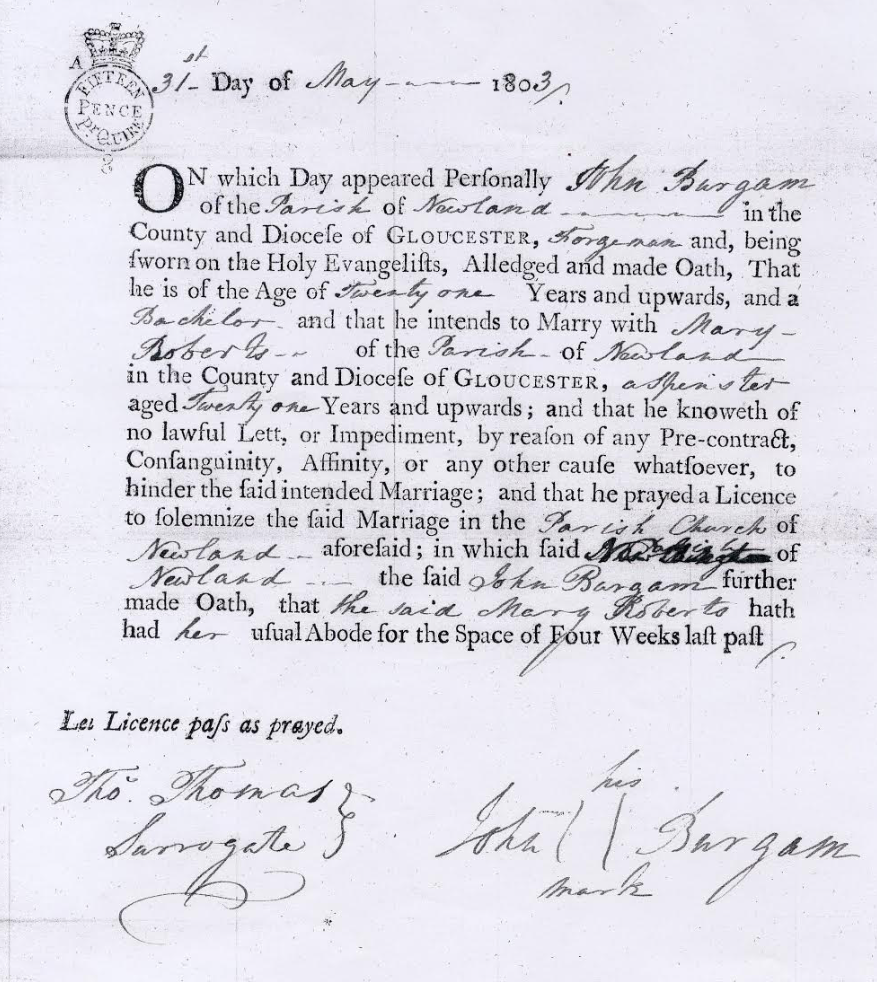 A
FIFTEEN
PENCE
pr QUIRE
31st Day of May 1803
ON which Day appeared Perſonally John Burgam
of the Parish of Newland in the
County and Dioceſe of GLOUCESTER, Forgeman and, being
ſworn on the Holy Evangeliſts, Alledged and made Oath, That
he is of the Age of Twenty one Years and upwards, and a
Bachelor and that he intends to Marry with Mary
Roberts of the Parish of Newland
in the County and Dioceſe of GLOUCESTER, a Spinster
aged Twenty one Years and upwards; and that he knoweth of
no lawful Lett, or Impediment, by reaſon of any Pre-contract,
Conſanguinity, Affinity, or any other cauſe whatſoever, to
hinder the ſaid intended Marriage; and that he prayed a Licence
to ſolemnize the ſaid Marriage in the Parish Church of
Newland aforeſaid; in which ſaid of
Newland the ſaid John Burgam further
made Oath, that the said Mary Roberts hath
had her uſual Abode for the Space of Four Weeks laſt paſt
Let Licence paſs as prayed.
Thos. Thomas
Surrogate
his
John Burgam
mark